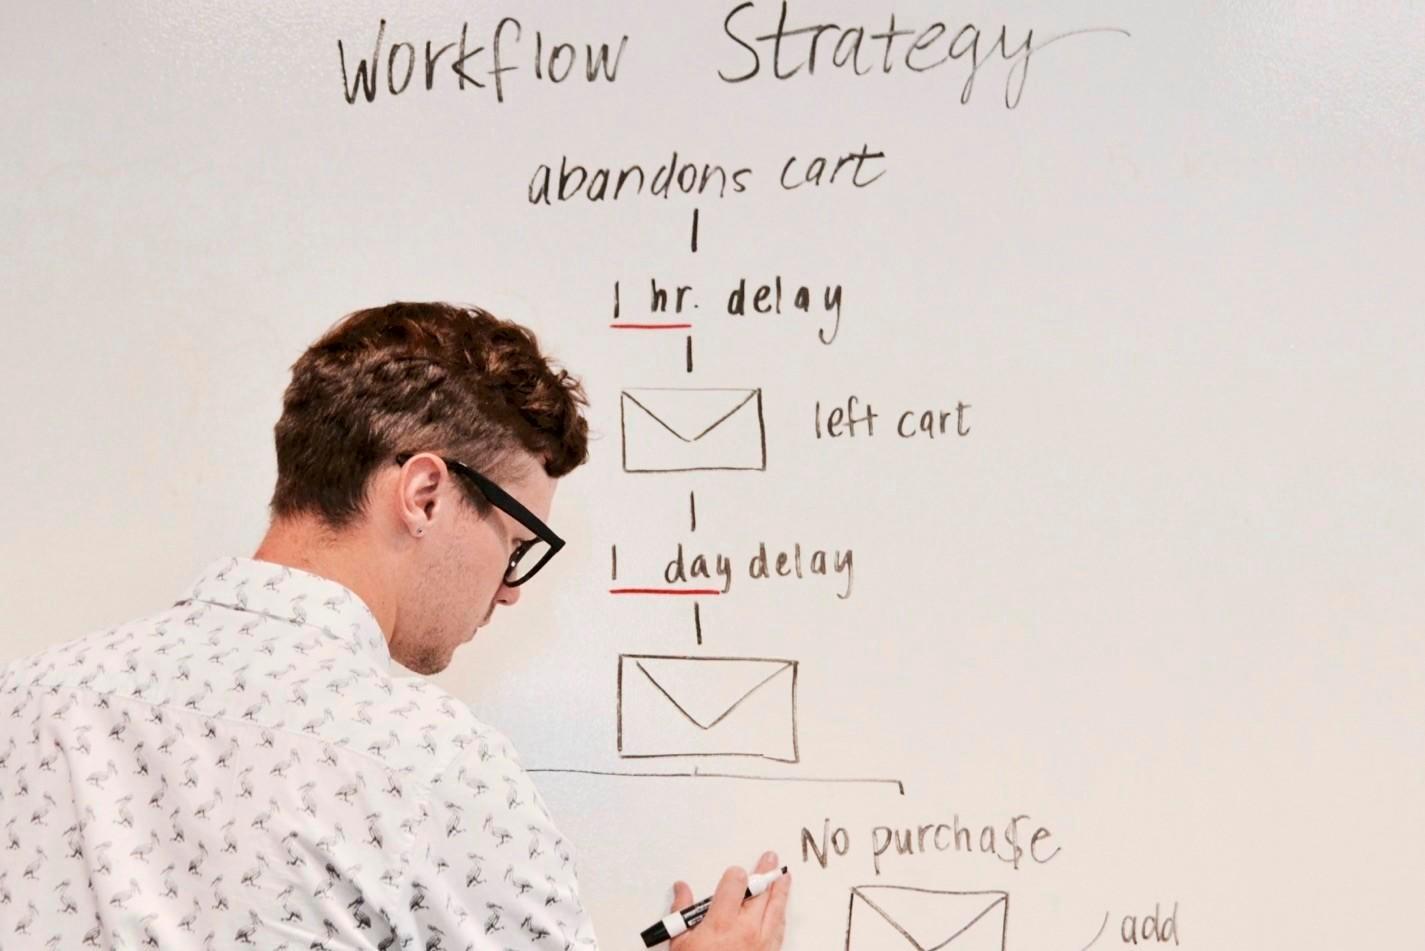 Workflow Strategy
abandons cart
1 hr. delay
left cart
1 day delay
No purcha$e
add